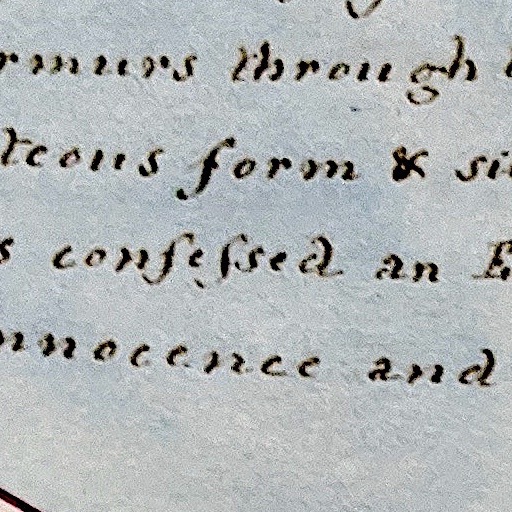 rmurs through
teous form & si
s confeſsed an E
nnocence and